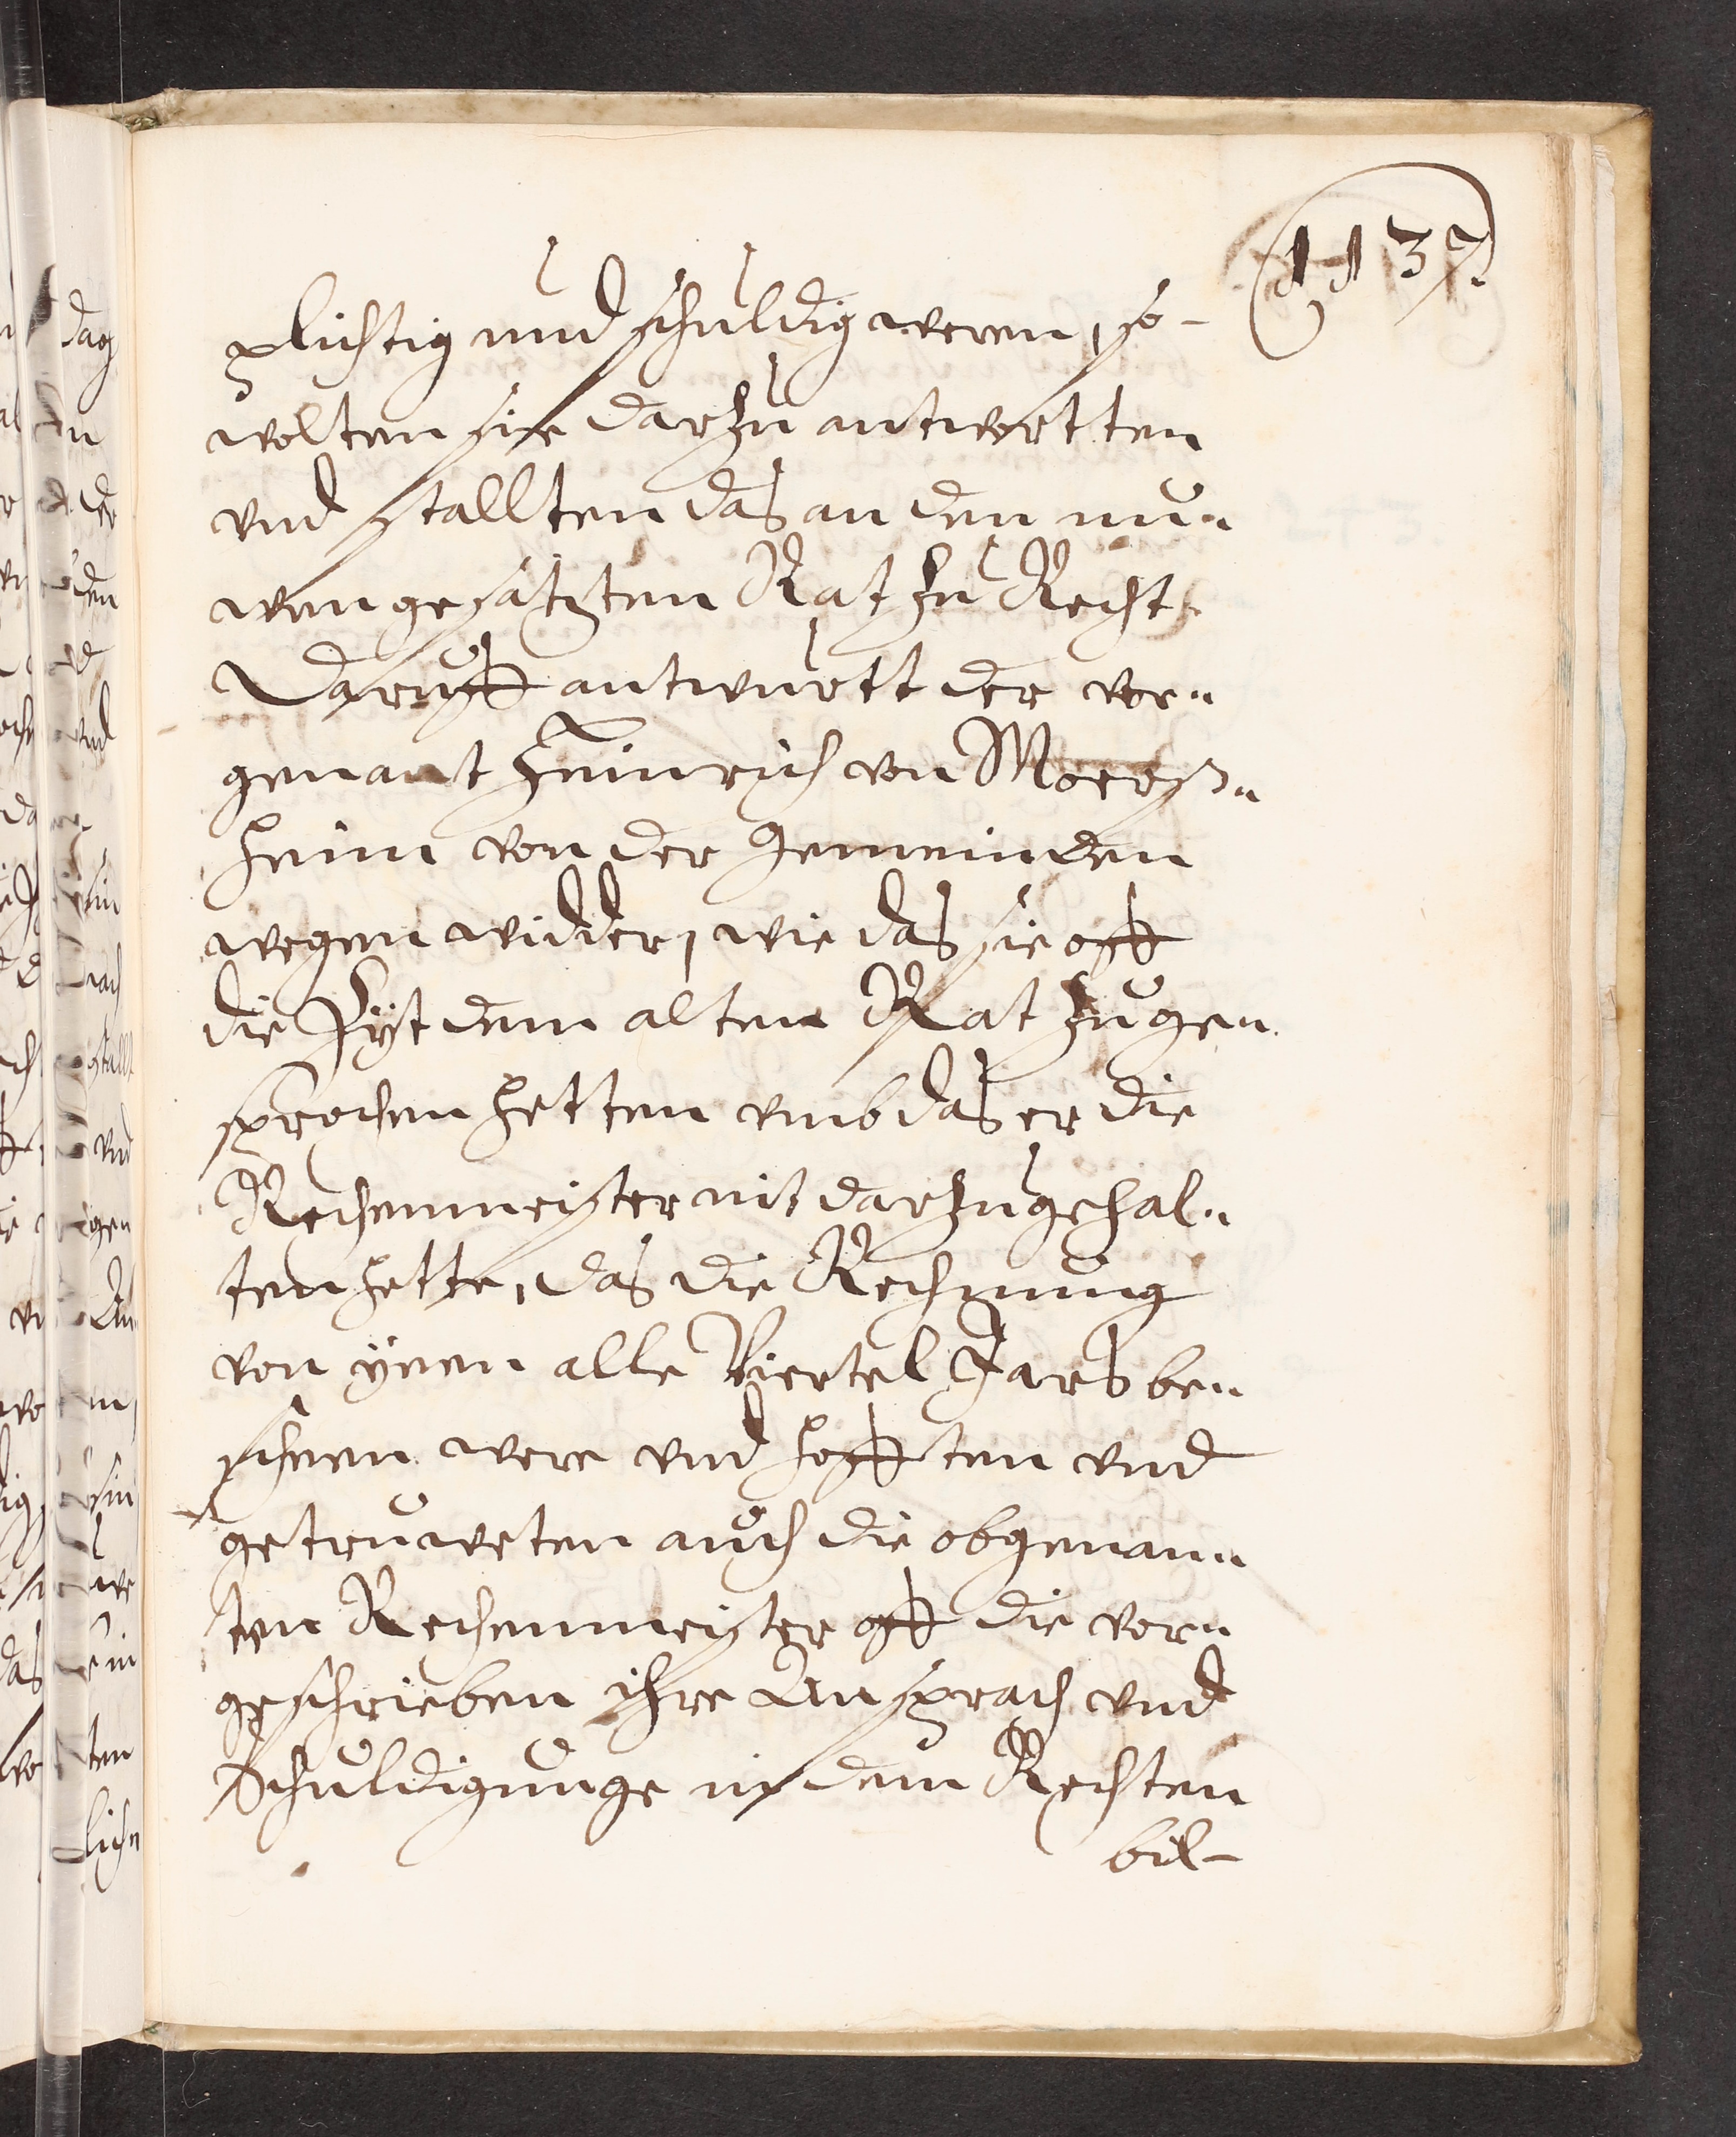 1137.
plichtig und schuldig weren, so-
wolten sie darzu antwortten
vnd stallten das an den nu„
wen gesatzten Rat zu Recht.
Daruff antwurtt der vor„
genant Heinrich von Moersz„
heim von der Gemeinden
wegen widder, wie das sie off
die Zyt dem alten Rat zuge„
sprochen hetten vmb das er die
Rechenmeister nit darzu gehal„
ten hette, das die Rechnung
von ynen alle Viertel Jars be„
scheen were vnd hofften vnd
getruweten auch die obgenan„
ten Rechenmeister off die vor„
geschrieben ihre Ansprach vnd
Schuldigunge in dem Rechten
bil-